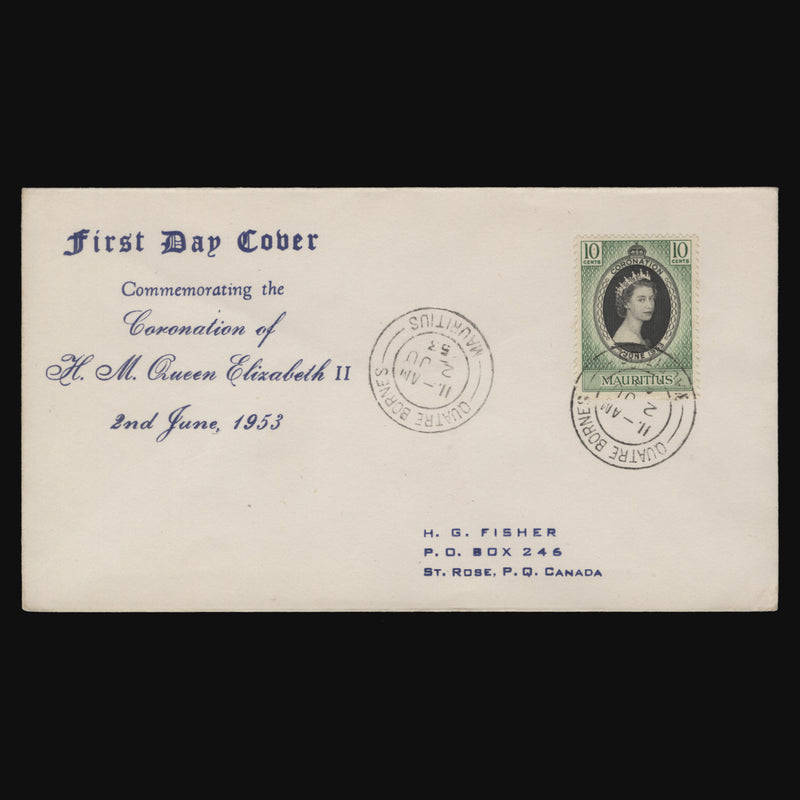 First Day Cover
Commemorating the
Coronation of
H. M. Queen Elizabeth II
2nd June, 1953
MAURITIUS
53
2 JU
11 - AM
QUATRE BORNES
10 CENTS
10 CENTS
CORONATION
2 JUNE 1953
MAURITIUS
2 JU
11 - AM
QUATRE BORNES
H. G. FISHER
P.O. BOX 246
ST. ROSE, P.Q. CANADA